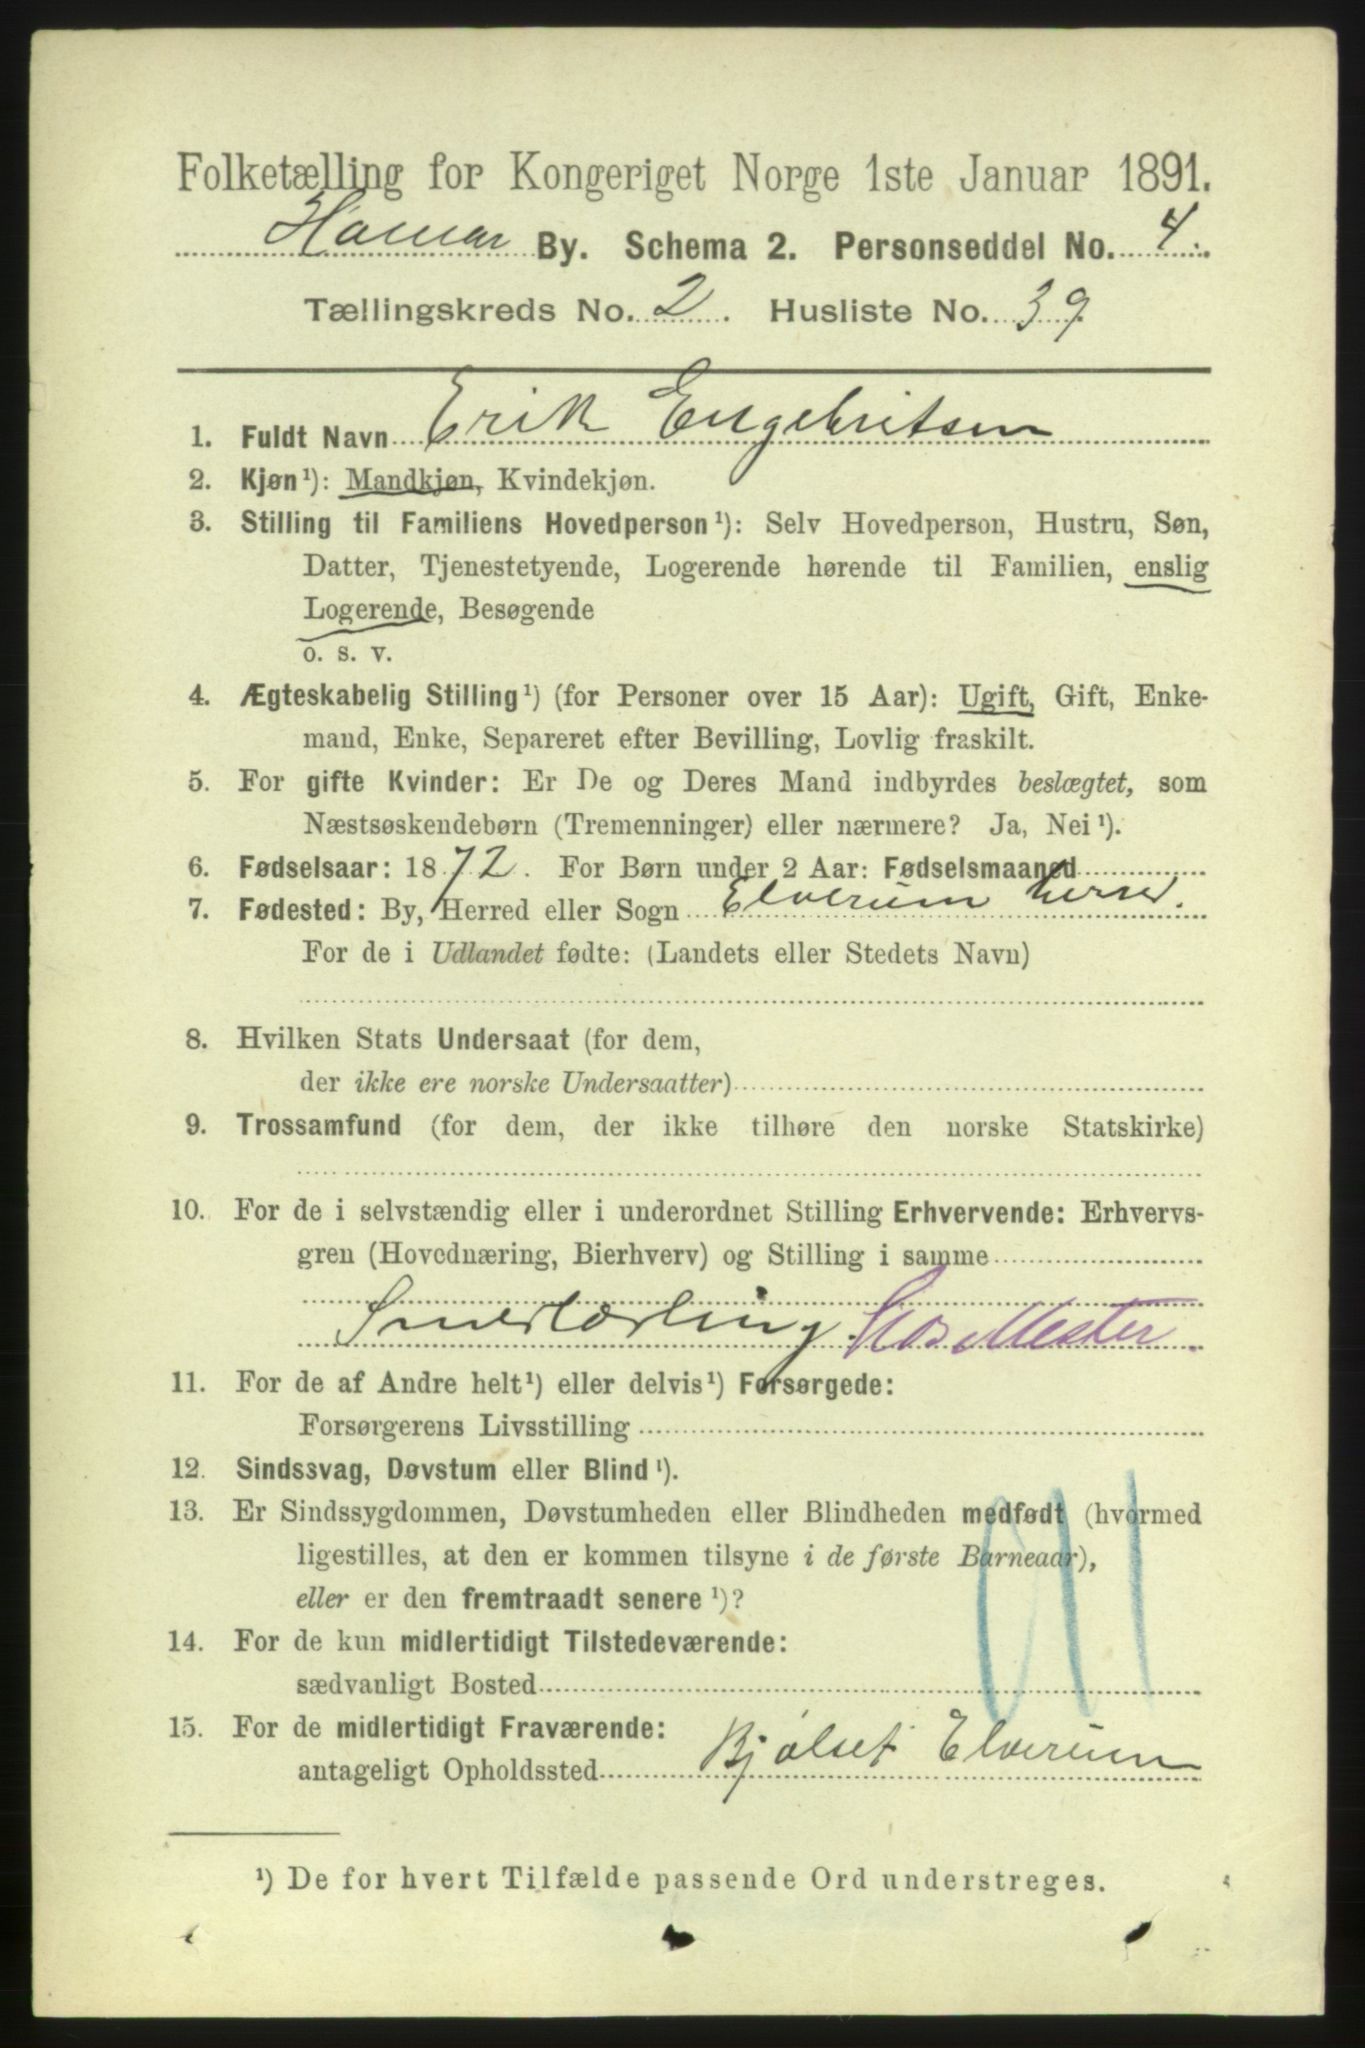 Folketælling for Kongeriget Norge 1ste Januar 1891.
Hamar By. Schema 2. Personseddel No. 4.
Tællingskreds No. 2. Husliste No. 39
1. Fuldt Navn Erik Engebritsen
2. Kjøn¹): Mandkjøn, Kvindekjøn.
3. Stilling til Familiens Hovedperson¹): Selv Hovedperson, Hustru, Søn,
Datter, Tjenestetyende, Logerende hørende til Familien, enslig
Logerende, Besøgende
o. s. v.
4. Ægteskabelig Stilling¹) (for Personer over 15 Aar): Ugift, Gift, Enke-
mand, Enke, Separeret efter Bevilling, Lovlig fraskilt.
5. For gifte Kvinder: Er De og Deres Mand indbyrdes beslægtet, som
Næstsøskendebørn (Tremenninger) eller nærmere? Ja, Nei¹).
6. Fødselsaar: 1872. For Børn under 2 Aar: Fødselsmaaned
7. Fødested: By, Herred eller Sogn Elverum herred.
For de i Udlandet fødte: (Landets eller Stedets Navn)
8. Hvilken Stats Undersaat (for dem,
der ikke ere norske Undersaatter)
9. Trossamfund (for dem, der ikke tilhøre den norske Statskirke)
10. For de i selvstændig eller i underordnet Stilling Erhvervende: Erhvervs-
gren (Hovednæring, Bierhverv) og Stilling i samme
Smedlærling, hos Mester.
11. For de af Andre helt¹) eller delvis¹) Forsørgede:
Forsørgerens Livsstilling
12. Sindssvag, Døvstum eller Blind¹).
13. Er Sindssygdommen, Døvstumheden eller Blindheden medfødt (hvormed
ligestilles, at den er kommen tilsyne i de første Barneaar),
eller er den fremtraadt senere¹)?
14. For de kun midlertidigt Tilstedeværende:
sædvanligt Bosted
15. For de midlertidigt Fraværende:
antageligt Opholdssted Bjølset Elverum
¹) De for hvert Tilfælde passende Ord understreges.